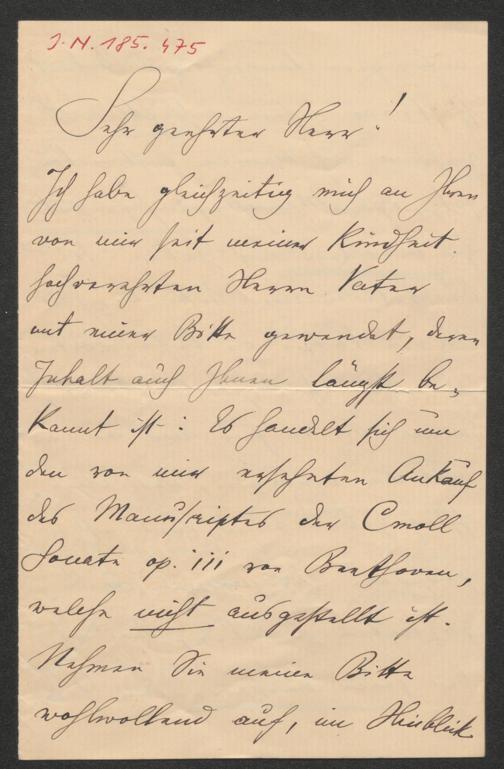 J. N. 185.475
Sehr geehrter Herr!
Ich habe gleichzeitig mich an Ihren
von mir seit meiner Kindheit
hochverehrten Herrn Vater
mit einer Bitte gewendet, deren
Inhalt auch Ihnen längst be-
kannt ist: Es handelt sich um
den von mir ersehnten Ankauf
des Manuscriptes der Cmoll
Sonate op. 111 von Beethoven,
welche nicht ausgestellt ist.
Nehmen Sie meine Bitte
wohlwollend auf, im Hinblick